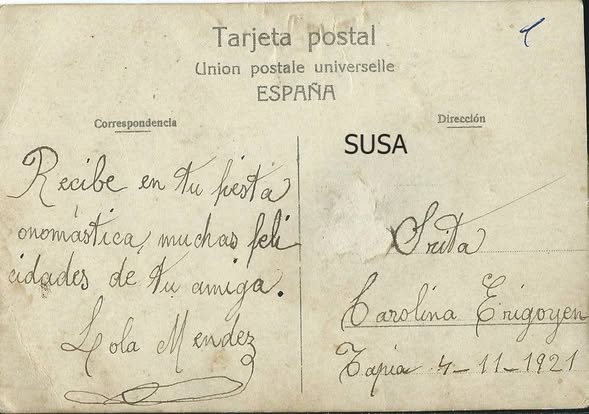 Tarjeta postal
Union postale universelle
ESPAÑA
Correspondencia
Dirección
SUSA
Recibe en tu fiesta
onomástica, muchas feli
cidades de tu amiga.
Lola Mendez
Srita
Carolina Erigoyen
Tapia 4-11-1921